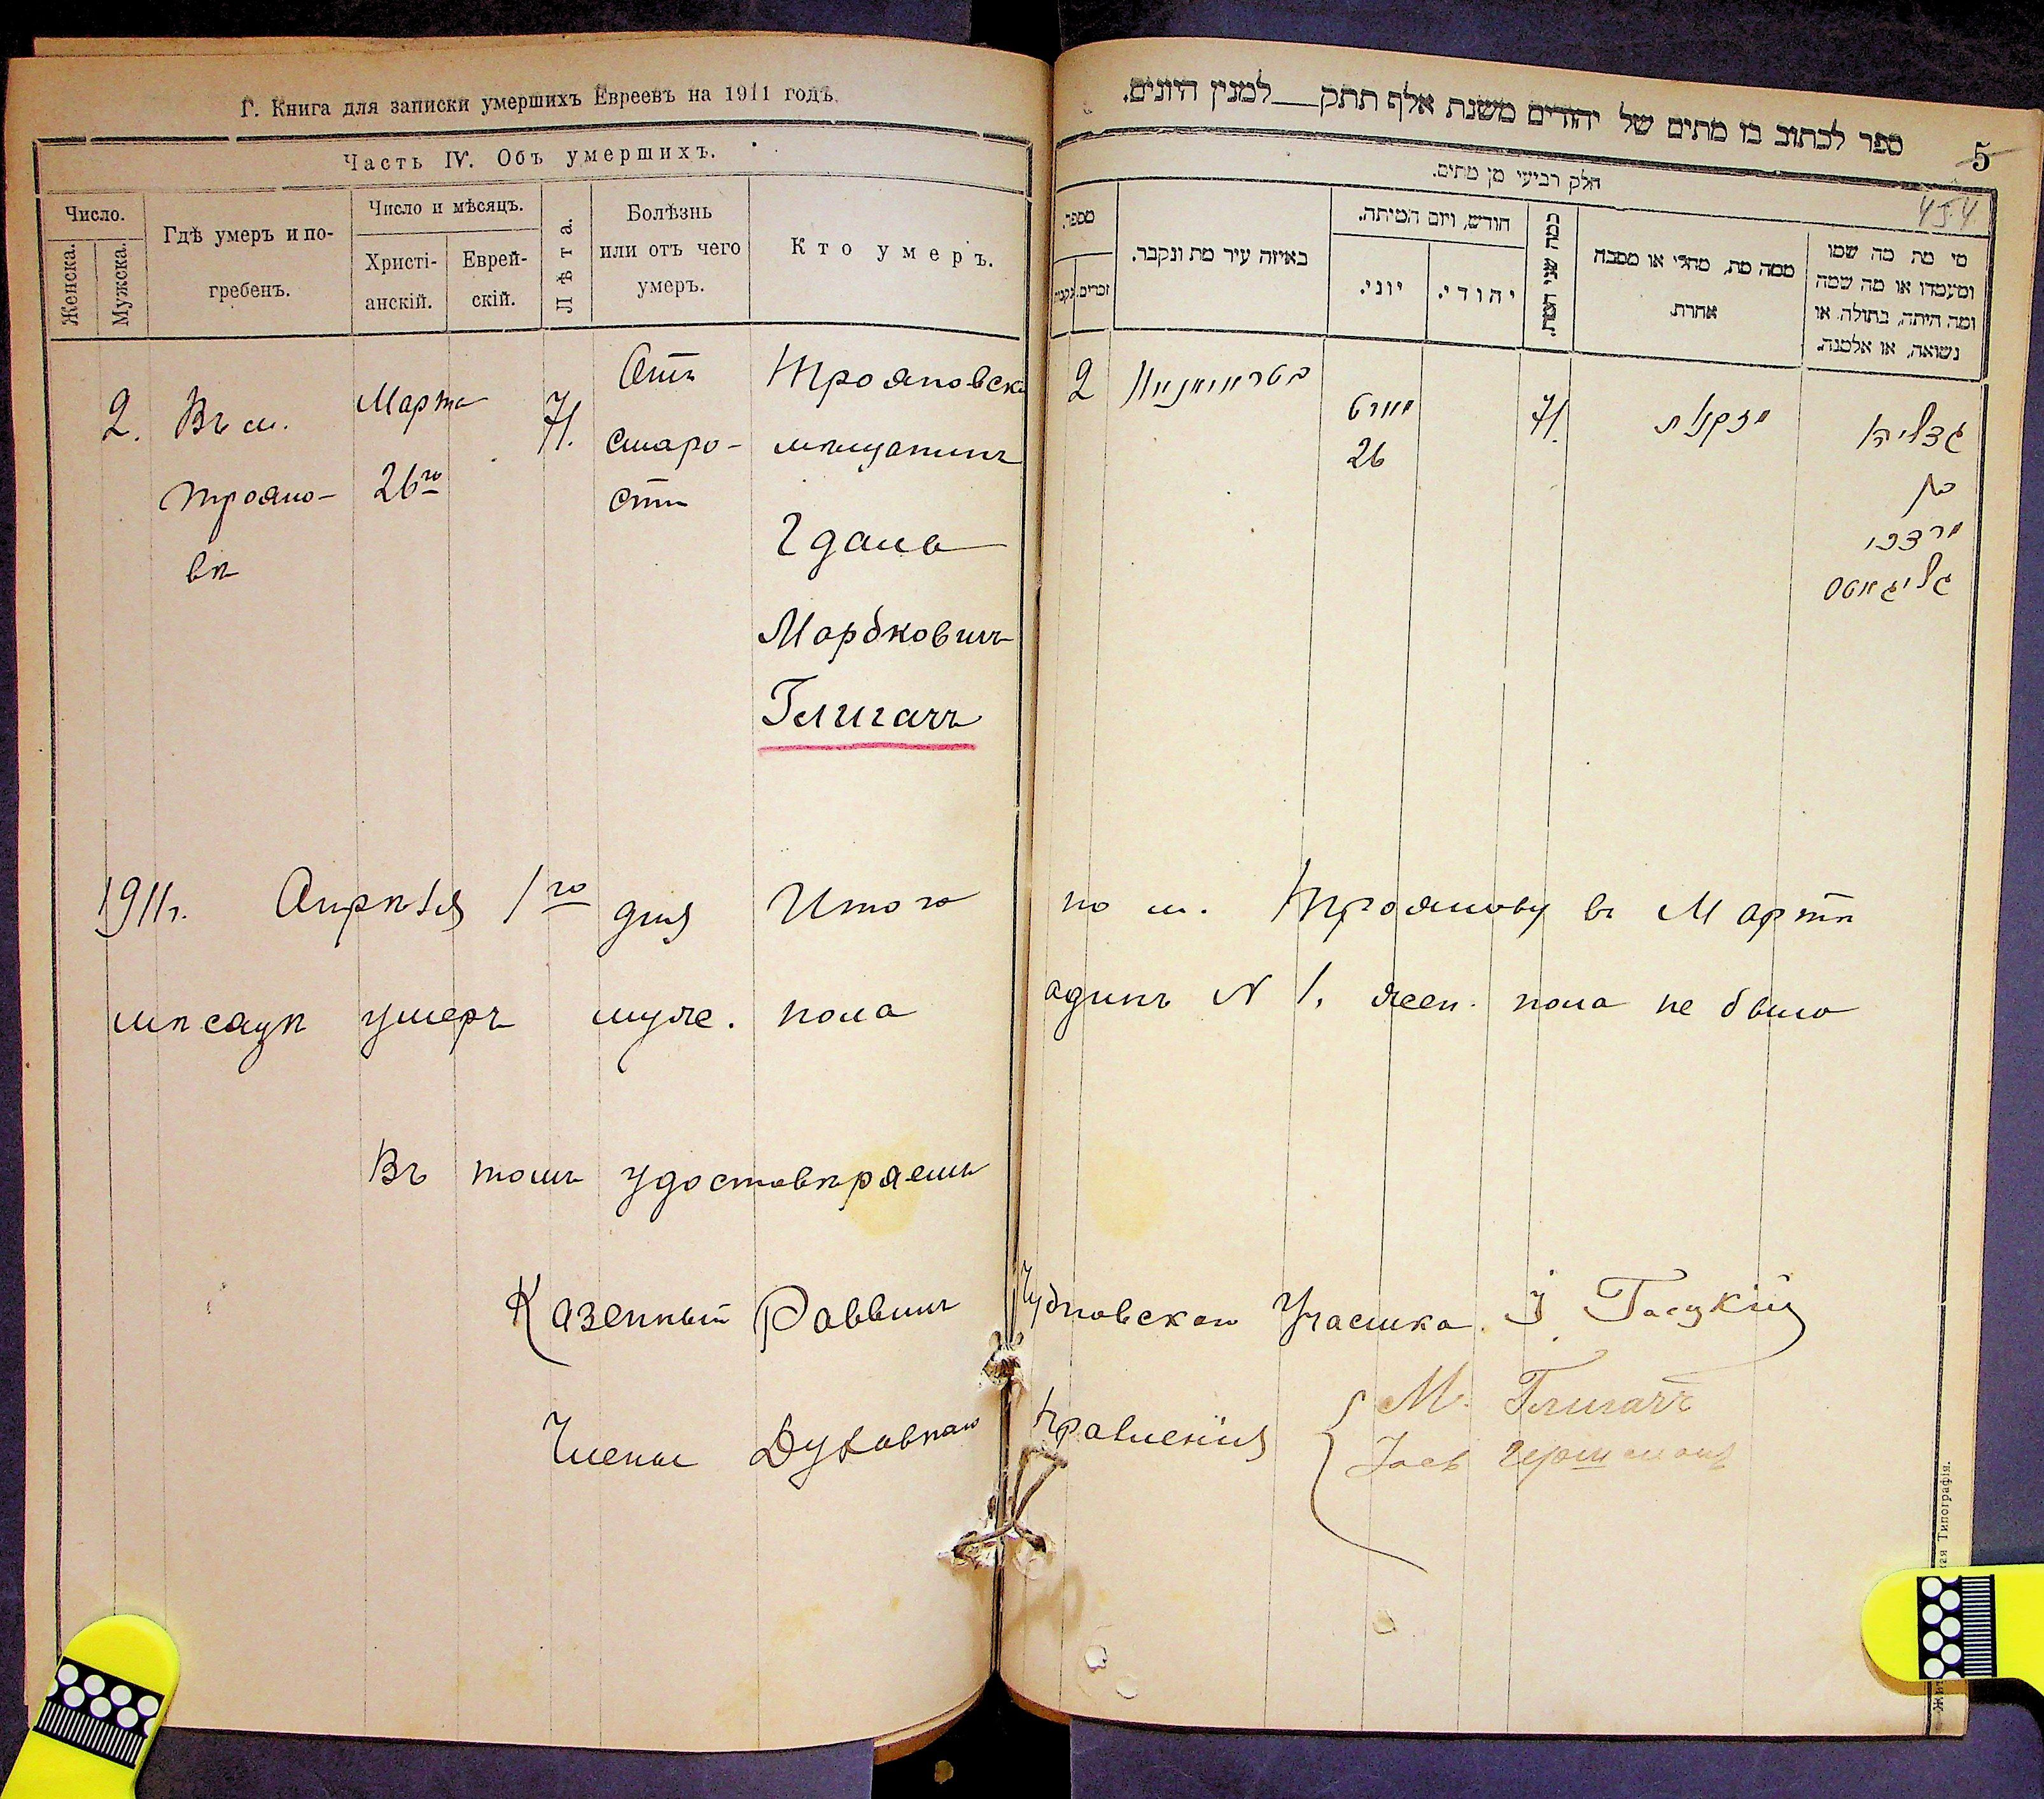 Г. Книга для записки умершихъ Евреевъ на 1911 годъ.
Часть IV. Объ умершихъ.
Число.
Женска.
Мужска.
Гдѣ умеръ и по-
гребенъ.
Число и мѣсяцъ.
Христі-
анскій.
Еврей-
скій.
Лѣта.
Болѣзнь
или отъ чего
умеръ.
Кто умеръ.
2.
Въ м.
трояно-
вѣ
Марта
26го
71.
Отъ
старо-
сти
Трояновск
мѣщанинъ
Гдаль
Мордковичъ
Глигачъ
ספר לכתוב בו מתים של יהודים משנת אלף תתק למנין היונים.
5
454
חלק רביעי מן מתים.
מספר.
זכרים.
נקבות
באיזה עיר מת ונקבר.
חודש, ויום המיתה.
יוני.
יהודי.
כמה שני המת.
ממה מת, מחלי או מסבה
אחרת.
מי מת מה שמו
ומעמדו או מה שמה
ומה היתה, בתולה או
נשואה, או אלמנה.
2
מארט
26
71.
מזקנות
גדליהו
בן
מרדכי
1911г. Апрѣля 1го дня Итого по м. Троянову въ Мартѣ
мѣсяцѣ умеръ муж. пола одинъ N 1, жен. пола не было
Въ томъ удостовѣряемъ
Казенный Раввинъ Чудновскаго Участка
Члены Духовнаго Правленія
М. Глигачъ
ая Типографія.